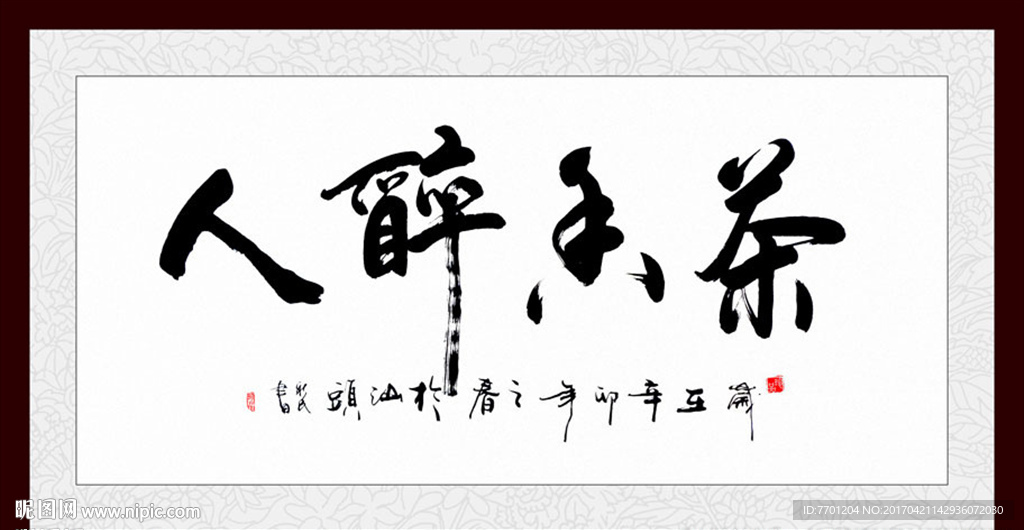 茶香醉人
歲在辛卯年之春於汕頭書
昵图网 www.nipic.com
ID:7701204 NO:20170421142936072030